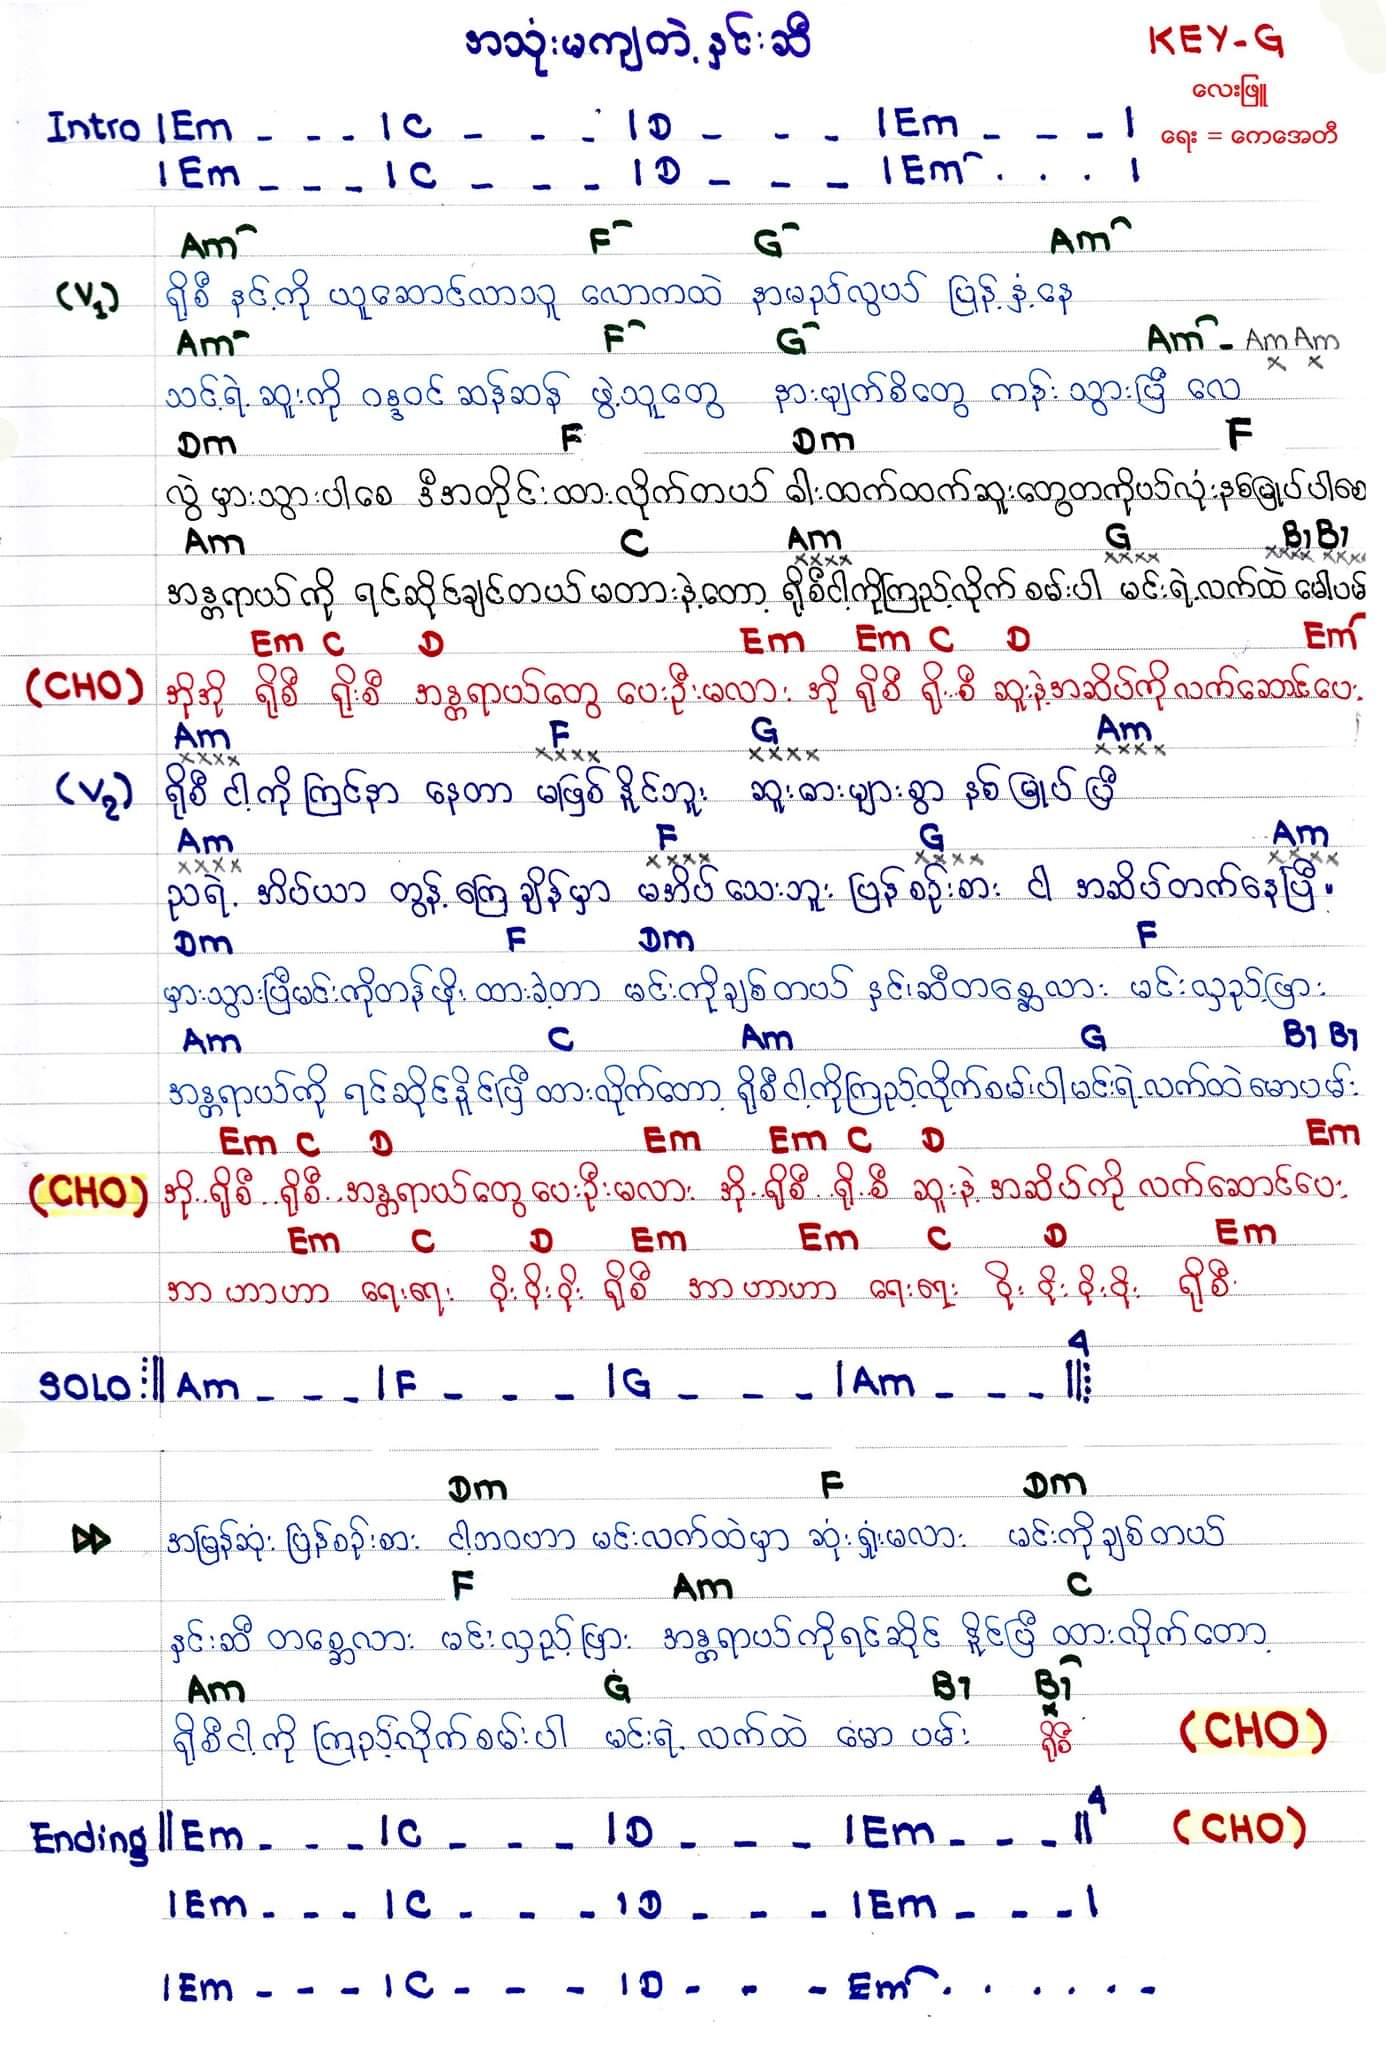 အသုံးမကျတဲ့ နှင်းဆီ
KEY-G
လေးဖြူ
ရေး = ကေအေတီ
Intro |Em _ _ _ |C _ _ _ |D _ _ _ |Em _ _ _ |
|Em _ _ _ |C _ _ _ |D _ _ _ |Em . . . |
Am F G Am
(V1) ရိုစီ နင့်ကို ယူဆောင်လာသူ လောကထဲ နာမည်လွယ် ပြန့်နှံ့နေ
Am F G Am - Am Am
x x
သင့်ရဲ့ဆူးကို ဝန္ဒဝင် ဆန်ဆန် ဖွဲ့သူတွေ နားမျက်စိတွေ ကန်းသွားပြီ လေ
Dm F Dm F
လွဲမှားသွားပါစေ ဒီအတိုင်းထားလိုက်တယ် ဓါးထက်ထက်ဆူးတွေတကိုယ်လုံးနစ်မြုပ်ပါစေ
Am C Am G B7 B7
xxxx xxxx xxxx xxxx
အန္တရာယ်ကို ရင်ဆိုင်ချင်တယ် မတားနဲ့တော့ ရိုစီငါ့ကိုကြည့်လိုက်စမ်းပါ မင်းရဲ့လက်ထဲ
Em C D Em Em C D Em
(CHO) အိုအို ရိုစီ ရိုးစီ အန္တရာယ်တွေ ပေးဦးမလား အို ရိုစီ ရိုးစီ ဆူးနဲ့အဆိပ်ကိုလက်ဆောင်ပေး
Am F G Am
xxxx xxxx xxxx xxxx
(V2) ရိုစီ ငါ့ကို ကြင်နာ နေတာ မဖြစ်နိုင်ဘူး ဆူးဓားများစွာ နစ်မြုပ်ပြီ
Am F G Am
xxxx xxxx xxxx xxxx
ညရဲ့ အိပ်ယာ တွန့်ကြေချိန်မှာ မအိပ်သေးဘူး ပြန်စဉ်းစား ငါ အဆိပ်တက်နေပြီ။
Dm F Dm F
မှားသွားပြီမင်းကိုတန်ဖိုးထားခဲ့တာ မင်းကိုချစ်တယ် နှင်းဆီတစ္ဆေလား မင်းလှည့်ဖြား
Am C Am G B7 B7
အန္တရာယ်ကို ရင်ဆိုင်နိုင်ပြီ ထားလိုက်တော့ ရိုစီငါ့ကိုကြည့်လိုက်စမ်းပါမင်းရဲ့လက်ထဲမောပမ်း
Em C D Em Em C D Em
(CHO) အို..ရိုစီ..ရိုစီ..အန္တရာယ်တွေပေးဦးမလား အို..ရိုစီ..ရိုစီ ဆူးနဲ့ အဆိပ်ကို လက်ဆောင်ပေး
Em C D Em Em C D Em
အာ ဟာဟာ ရေးရေး ဝိုးဝိုးဝိုး ရိုစီ အာ ဟာဟာ ရေးရေး ဝိုးဝိုးဝိုးဝိုး ရိုစီ
SOLO :||Am _ _ _ |F _ _ _ |G _ _ _ |Am _ _ _ ||: 4
Dm F Dm
အမြန်ဆုံး ပြန်စဉ်းစား ငါ့ဘဝဟာ မင်းလက်ထဲမှာ ဆုံးရှုံးမလား မင်းကိုချစ်တယ်
F Am C
နှင်းဆီ တစ္ဆေလား မင်းလှည့်ဖြား အန္တရာယ်ကိုရင်ဆိုင် နိုင်ပြီ ထားလိုက်တော့
Am G B7 B7
ရိုစီငါ့ကို ကြည့်လိုက်စမ်းပါ မင်းရဲ့ လက်ထဲ မောပမ်း ရိုစီ (CHO)
Ending ||Em _ _ _ |C _ _ _ |D _ _ _ |Em _ _ _ || 4 (CHO)
|Em _ _ _ |C _ _ _ |D _ _ _ |Em _ _ _ |
|Em _ _ _ |C _ _ _ |D _ _ _ Em . . . . . .